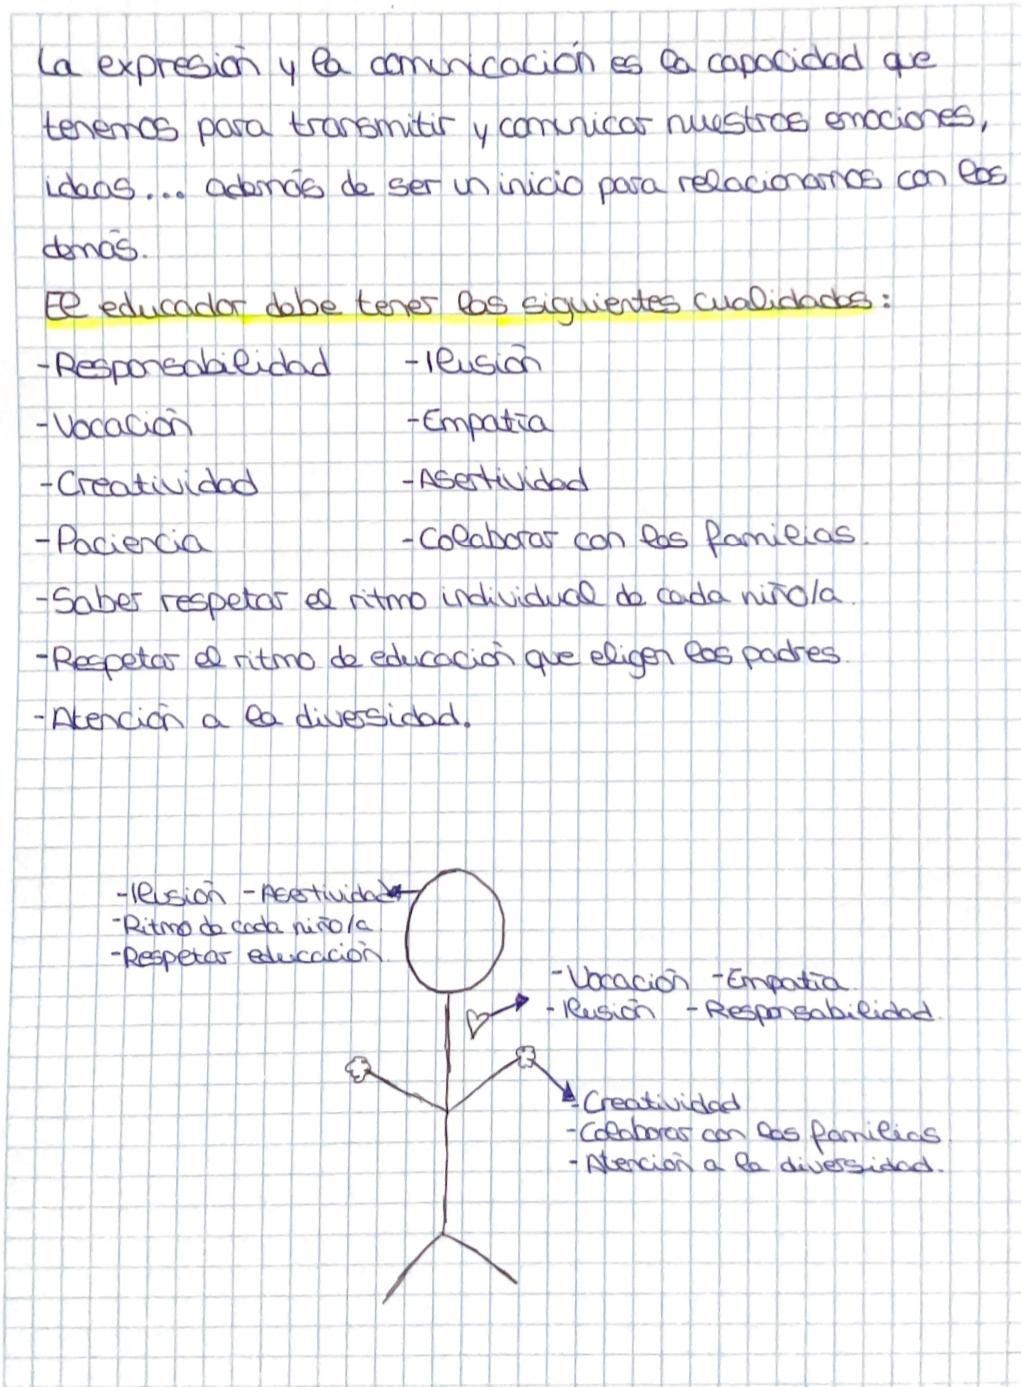 La expresión y la comunicación es la capacidad que
tenemos para transmitir y comunicar nuestras emociones,
ideas... además de ser un inicio para relacionarnos con los
demás.
El educador debe tener las siguientes cualidades:
-Responsabilidad -Ilusión
-Vocación -Empatía
-Creatividad -Asertividad
-Paciencia -Colaborar con las familias.
-Saber respetar el ritmo individual de cada niño/a.
-Respetar el ritmo de educación que eligen los padres.
-Atención a la diversidad.
-Ilusión -Asertividad
-Ritmo de cada niño/a.
-Respetar educación
-Vocación -Empatía.
-Ilusión -Responsabilidad.
-Creatividad
-Colaborar con las familias.
-Atención a la diversidad.